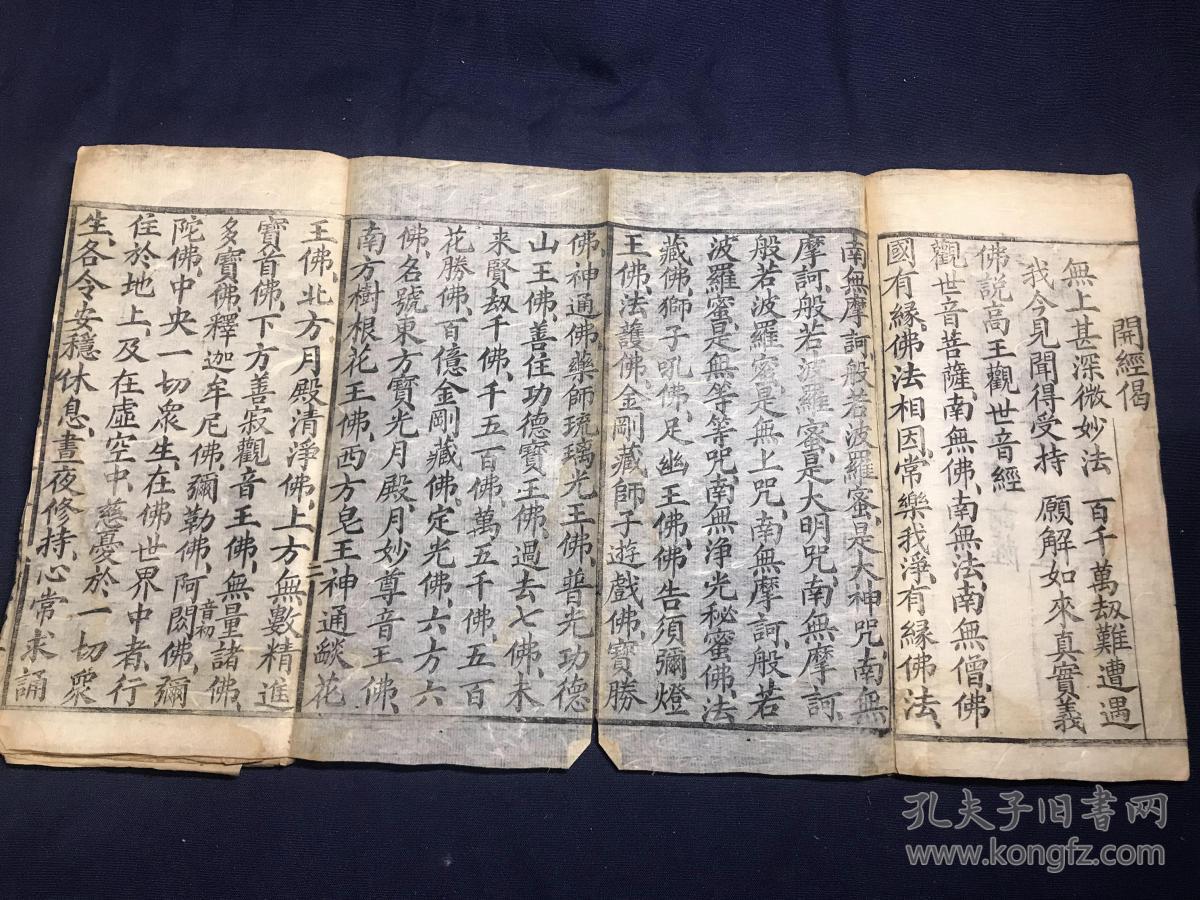 開經偈
無上甚深微妙法 百千萬刼難遭遇
我今見聞得受持 願解如來真實義
佛説高王觀世音經
觀世音菩薩、南無佛、南無法、南無僧、佛
國有緣、佛法相因、常樂我淨、有緣佛法、
南無摩訶般若波羅蜜、是大神咒、南無
摩訶般若波羅蜜、是大明咒、南無摩訶
般若波羅密、是無上咒、南無摩訶般若
波羅蜜、是無等等咒、南無淨光秘蜜佛、法
藏佛、獅子吼佛、足幽王佛、佛告須彌燈
王佛、法護佛、金剛藏師子遊戲佛、寶勝
佛、神通佛、藥師琉璃光王佛、普光功德
山王佛、善住功德寶王佛、過去七佛、未
来賢刼千佛、千五百佛、萬五千佛、五百
花勝佛、百億金剛藏佛、定光佛、六方六
佛、名號東方寶光月殿、月妙尊音王佛、
南方樹根花王佛、西方皂王神通燄花
王佛、北方月殿清淨佛、上方無數精進
寶首佛、下方善寂觀音王佛、無量諸佛、
多寶佛、釋迦牟尼佛、彌勒佛、阿閦佛、彌
音初
陀佛、中央一切衆生、在佛世界中者、行
住於地上、及在虛空中、慈憂於一切衆
生、各令安穩休息、晝夜修持、心常求誦
二
孔夫子旧書网
www.kongfz.com